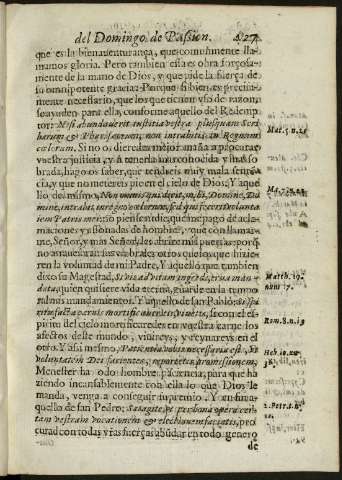 del Domingo de Passion. 427
que es la bienaventurança, que comunmente lla-
mamos gloria. Pero tambien esta es obra forçosa-
mente de la mano de Dios, y que pide la fuerça de
su omnipotente gracia: Porque si bien es precisa-
mente necessario, que los que tienen vso de razon,
se ayuden para ella, conforme aquello del Redemp-
tor: Nisi abundaverit iustitia vestra plusquam Scri-
barum, & Phariseorum, non intrabitis in Regnum
cœlorum. Si no os dieredes mejor maña a procurar
vuestra justicia, y a tenerla mas conocida y mas so-
brada, hagoos saber, que tendreis muy mala senten-
cia, y que no metereis pie en el cielo de Dios; Y aque-
llo del mismo, Non omnis qui dicit mihi, Domine, Do-
mine, intrabit in regnum cœlorum, sed qui fecerit volunta
tem Patris mei: no piense nadie, que me pago de acla-
maciones y de hombres, que con llamar-
me, Señor, y mas Señor, les abrire mis puertas: porque
no atravesaràn sus vmbrales otros que los que hizie-
ren la voluntad de mi Padre, Y aquello que tambien
dixo su Magestad, Si vis ad vitam ingredi, serva man-
data, quien quisiere vida eterna, guarde en la tempo
ral mis mandamientos. Y aquello de san Pablo: Si spi
ritu facta carnis mortificaveritis, vivetis, si con el es-
piritu del cielo mortificaredes en vuestra carne los
afectos deste mundo, vivireys, y reynareys en el
otro. Y assi mesmo, Patientia vobis necessaria est, vt
voluntatem Dei facientes, reportetis promissionem,
Menester ha todo hombre paciencia, para que ha
ziendo incansablemente con ella lo que Dios le
manda, venga a conseguir su premio. Y en fin a-
quello de san Pedro: Satagite, vt per bona opera cer-
tam vestram vocationem & electionem faciatis, pro
curad con todas vras fuerças abũdar en todo genero
de
Mat. 5. n. 21
Mat. 7.
Matth. 19.
num. 17.
Rom. 8. n. 13
Heb. 10.
36.
2. Petr. 1.